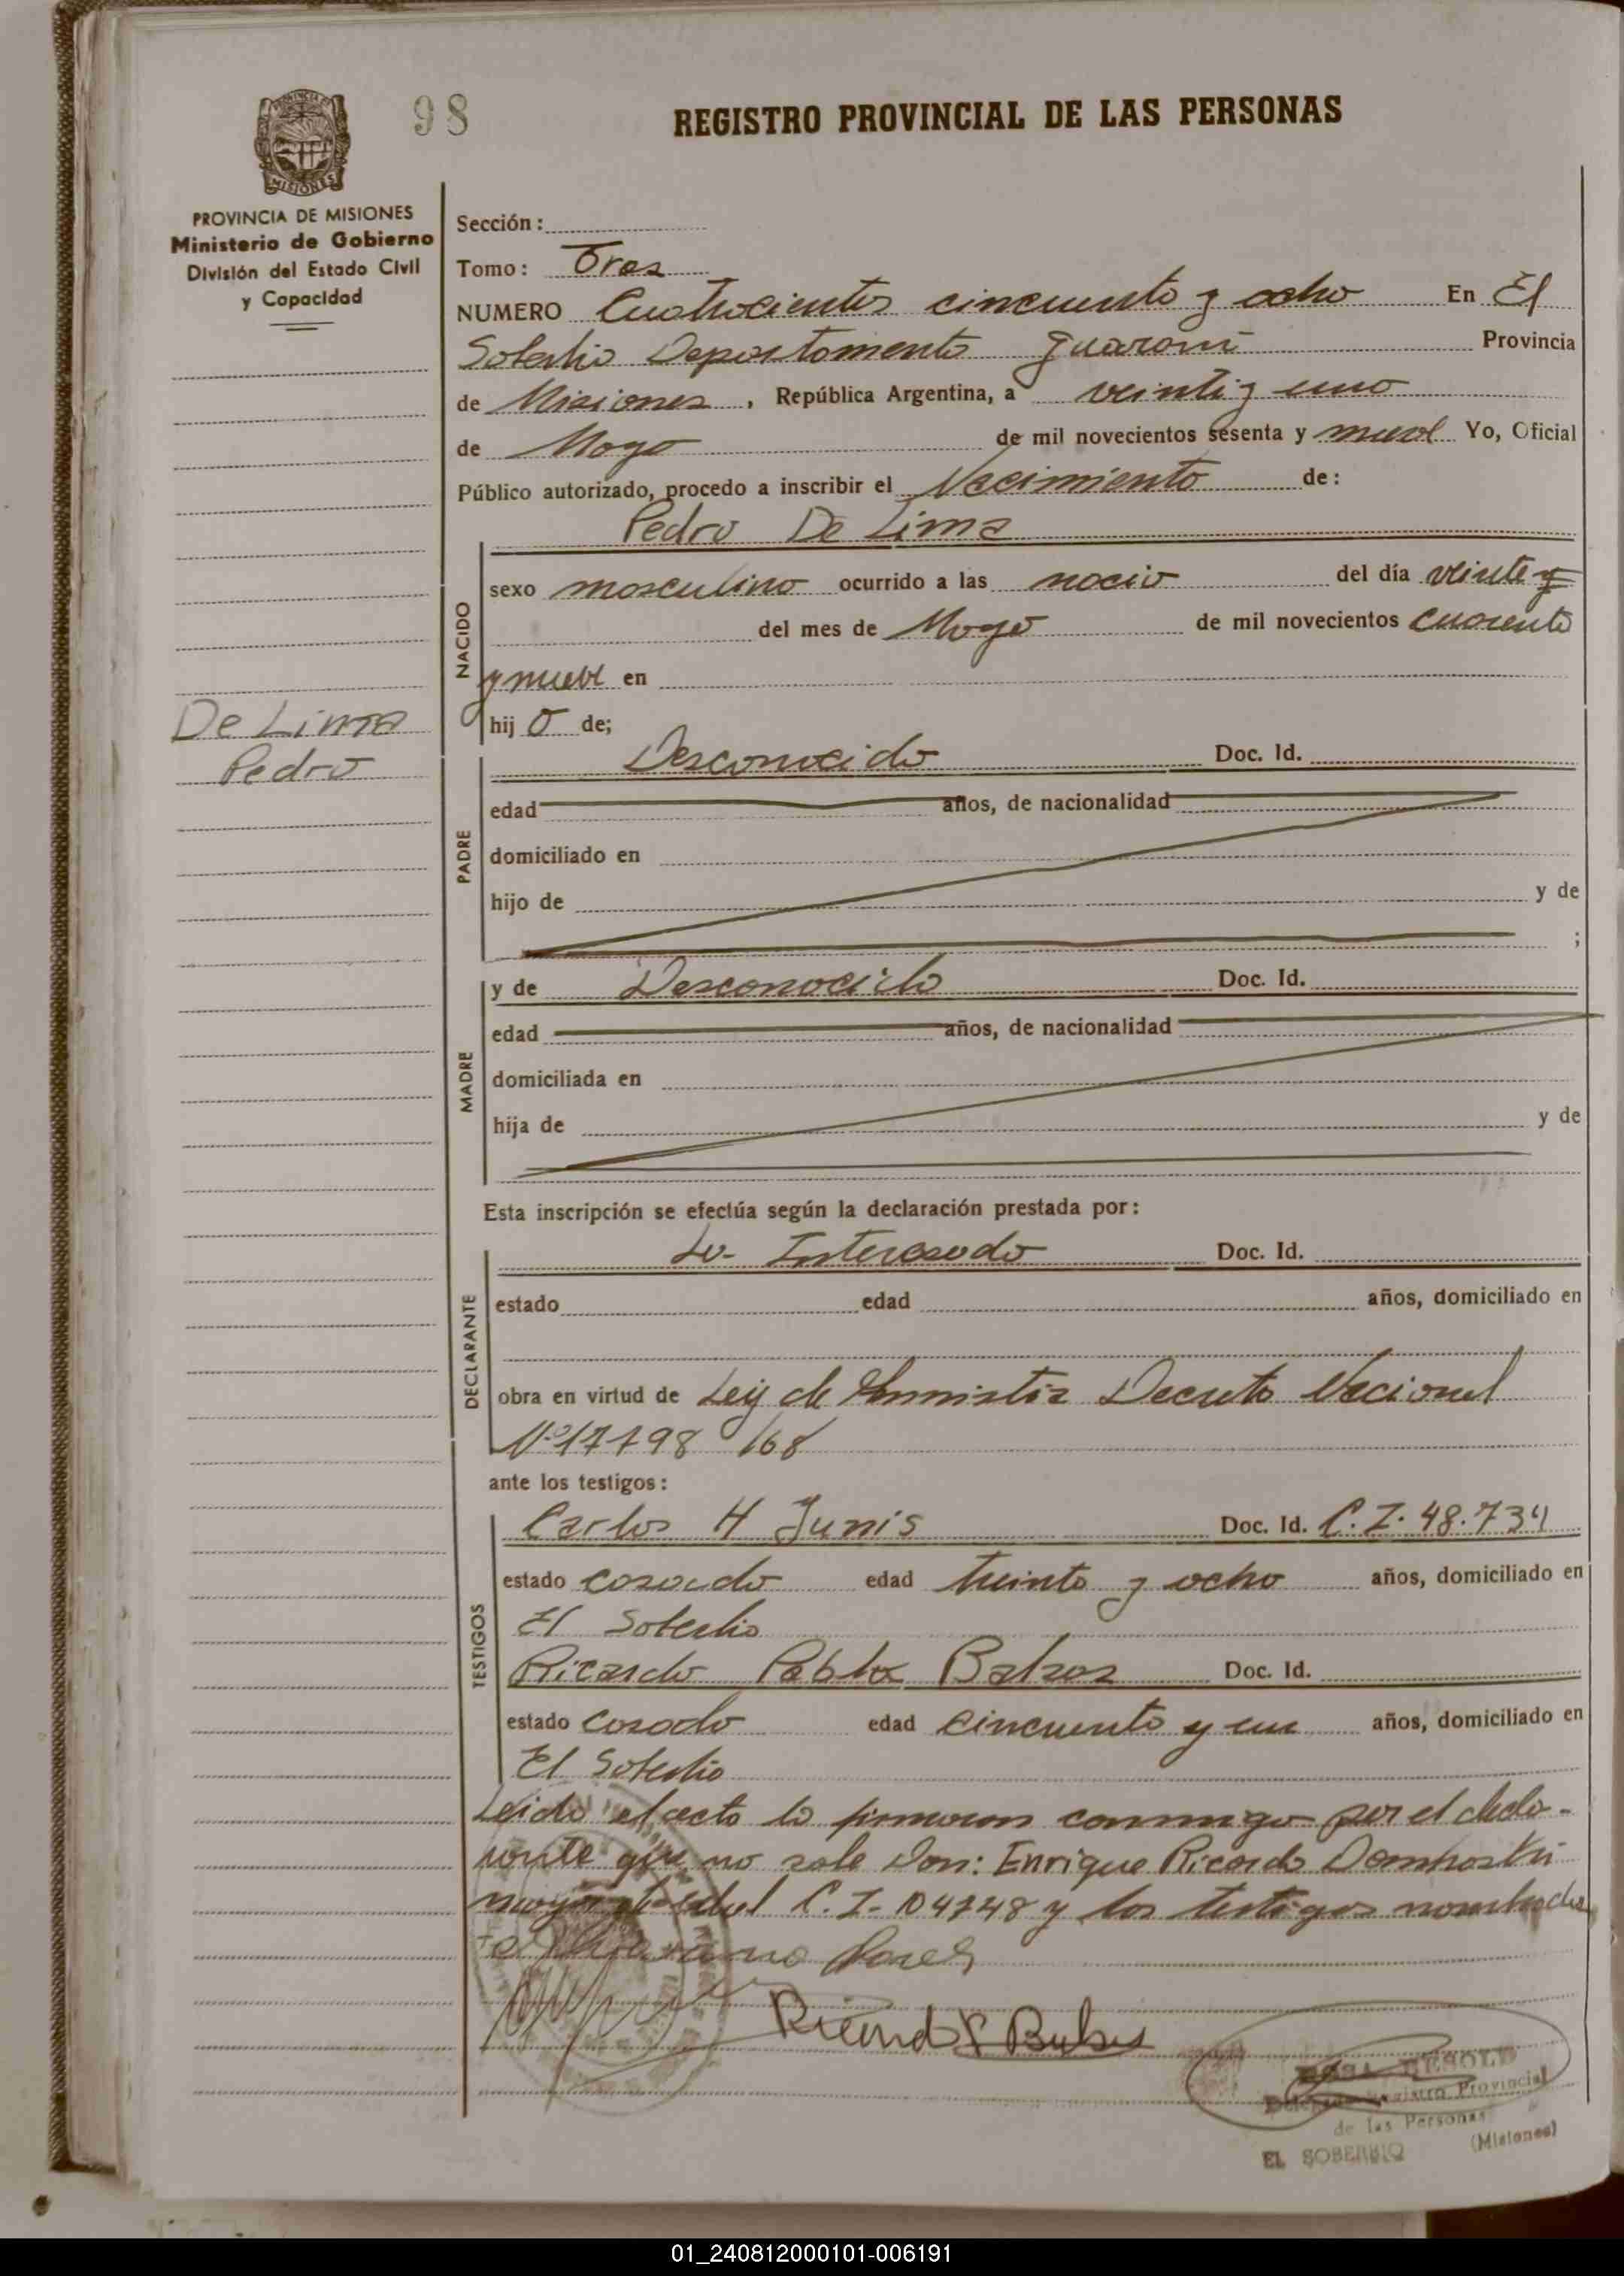 98
REGISTRO PROVINCIAL DE LAS PERSONAS
PROVINCIA DE MISIONES
MISIONES
PROVINCIA DE MISIONES
Ministerio de Gobierno
División del Estado Civil
y Capacidad
Sección:
Tomo: Tres
NUMERO Cuatrocientos cincuenta y ocho En El
Soberbio Departamento Guaraní Provincia
de Misiones, República Argentina, a veinti y uno
de Mayo de mil novecientos sesenta y nueve Yo, Oficial
Público autorizado, procedo a inscribir el Nacimiento de:
Pedro De Lima
NACIDO
sexo masculino ocurrido a las nació del día veinte y
del mes de Mayo de mil novecientos cuarenta
y nueve en
De Lima
Pedro
hij o de;
PADRE
Desconocido Doc. Id.
edad años, de nacionalidad
domiciliado en
hijo de y de
;
MADRE
y de Desconocido Doc. Id.
edad años, de nacionalidad
domiciliada en
hija de y de
Esta inscripción se efectúa según la declaración prestada por:
DECLARANTE
Interesado Doc. Id.
estado edad años, domiciliado en
obra en virtud de Ley de Amnistia Decreto Nacional
Nº 17798/68
ante los testigos:
TESTIGOS
Carlos H Junis Doc. Id. C.I. 48.734
estado casado edad treinta y ocho años, domiciliado en
El Soberbio
Ricardo Pablo Doc. Id.
estado casado edad cincuenta y un años, domiciliado en
El Soberbio
Leido el acta la firmaron conmigo por el decla-
rante que no sabe Don: Enrique Ricardo
mayor de edad C.I. y los testigos nombrados
Ricardo P
Delegado Registro Provincial
de las Personas
EL SOBERBIO (Misiones)
01_240812000101-006191